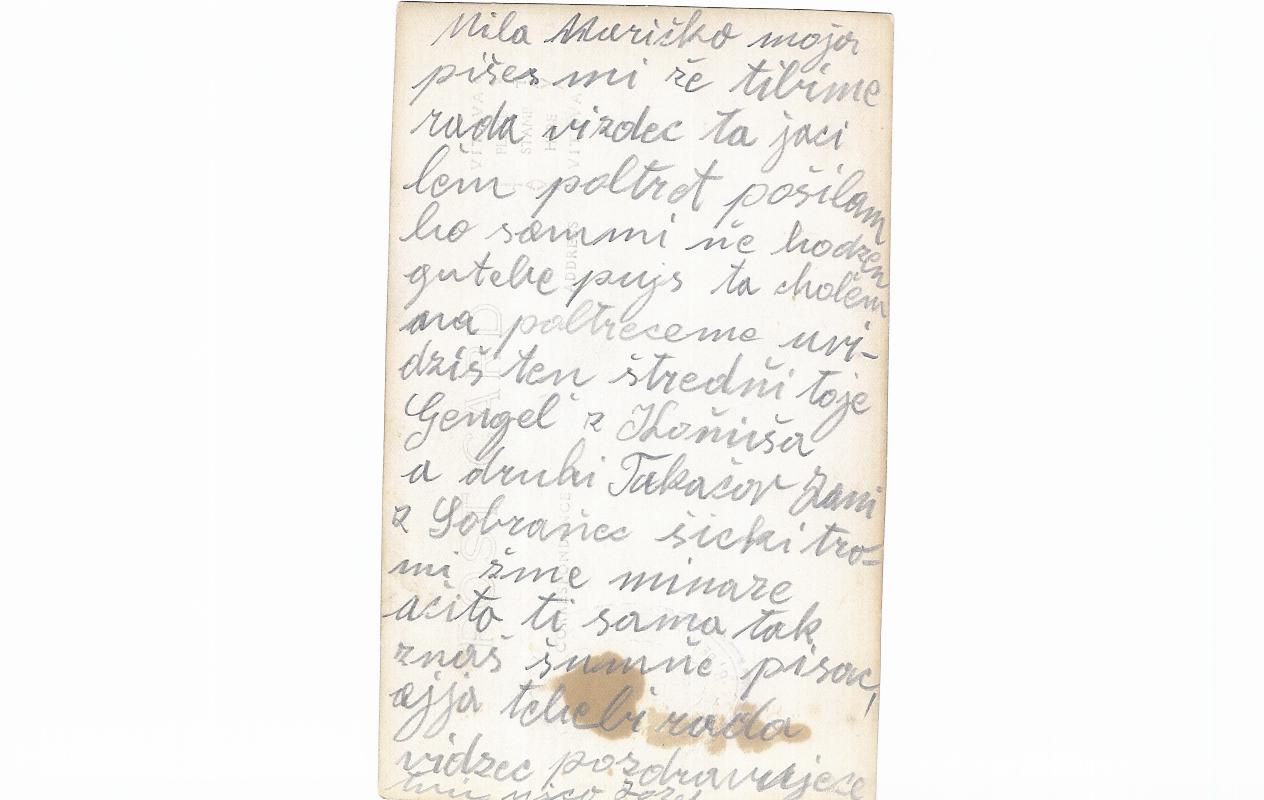 Mila Maričko moja
pišes mi že tibime
rada vizdec ta jaci
lěm poltret pošilam
bo sammi ňe hodzen
gutebe pujs ta cholěm
na poltreceme uvi-
dziš ten štredňi toje
Gengel z Koňuša
a druhi Takačov Jani
z Sobraňec šicki tro-
mi žme minare
ačito ti sama tak
znaš šumňe pisac,
ajja tebebi rada
vidzec pozdravujece